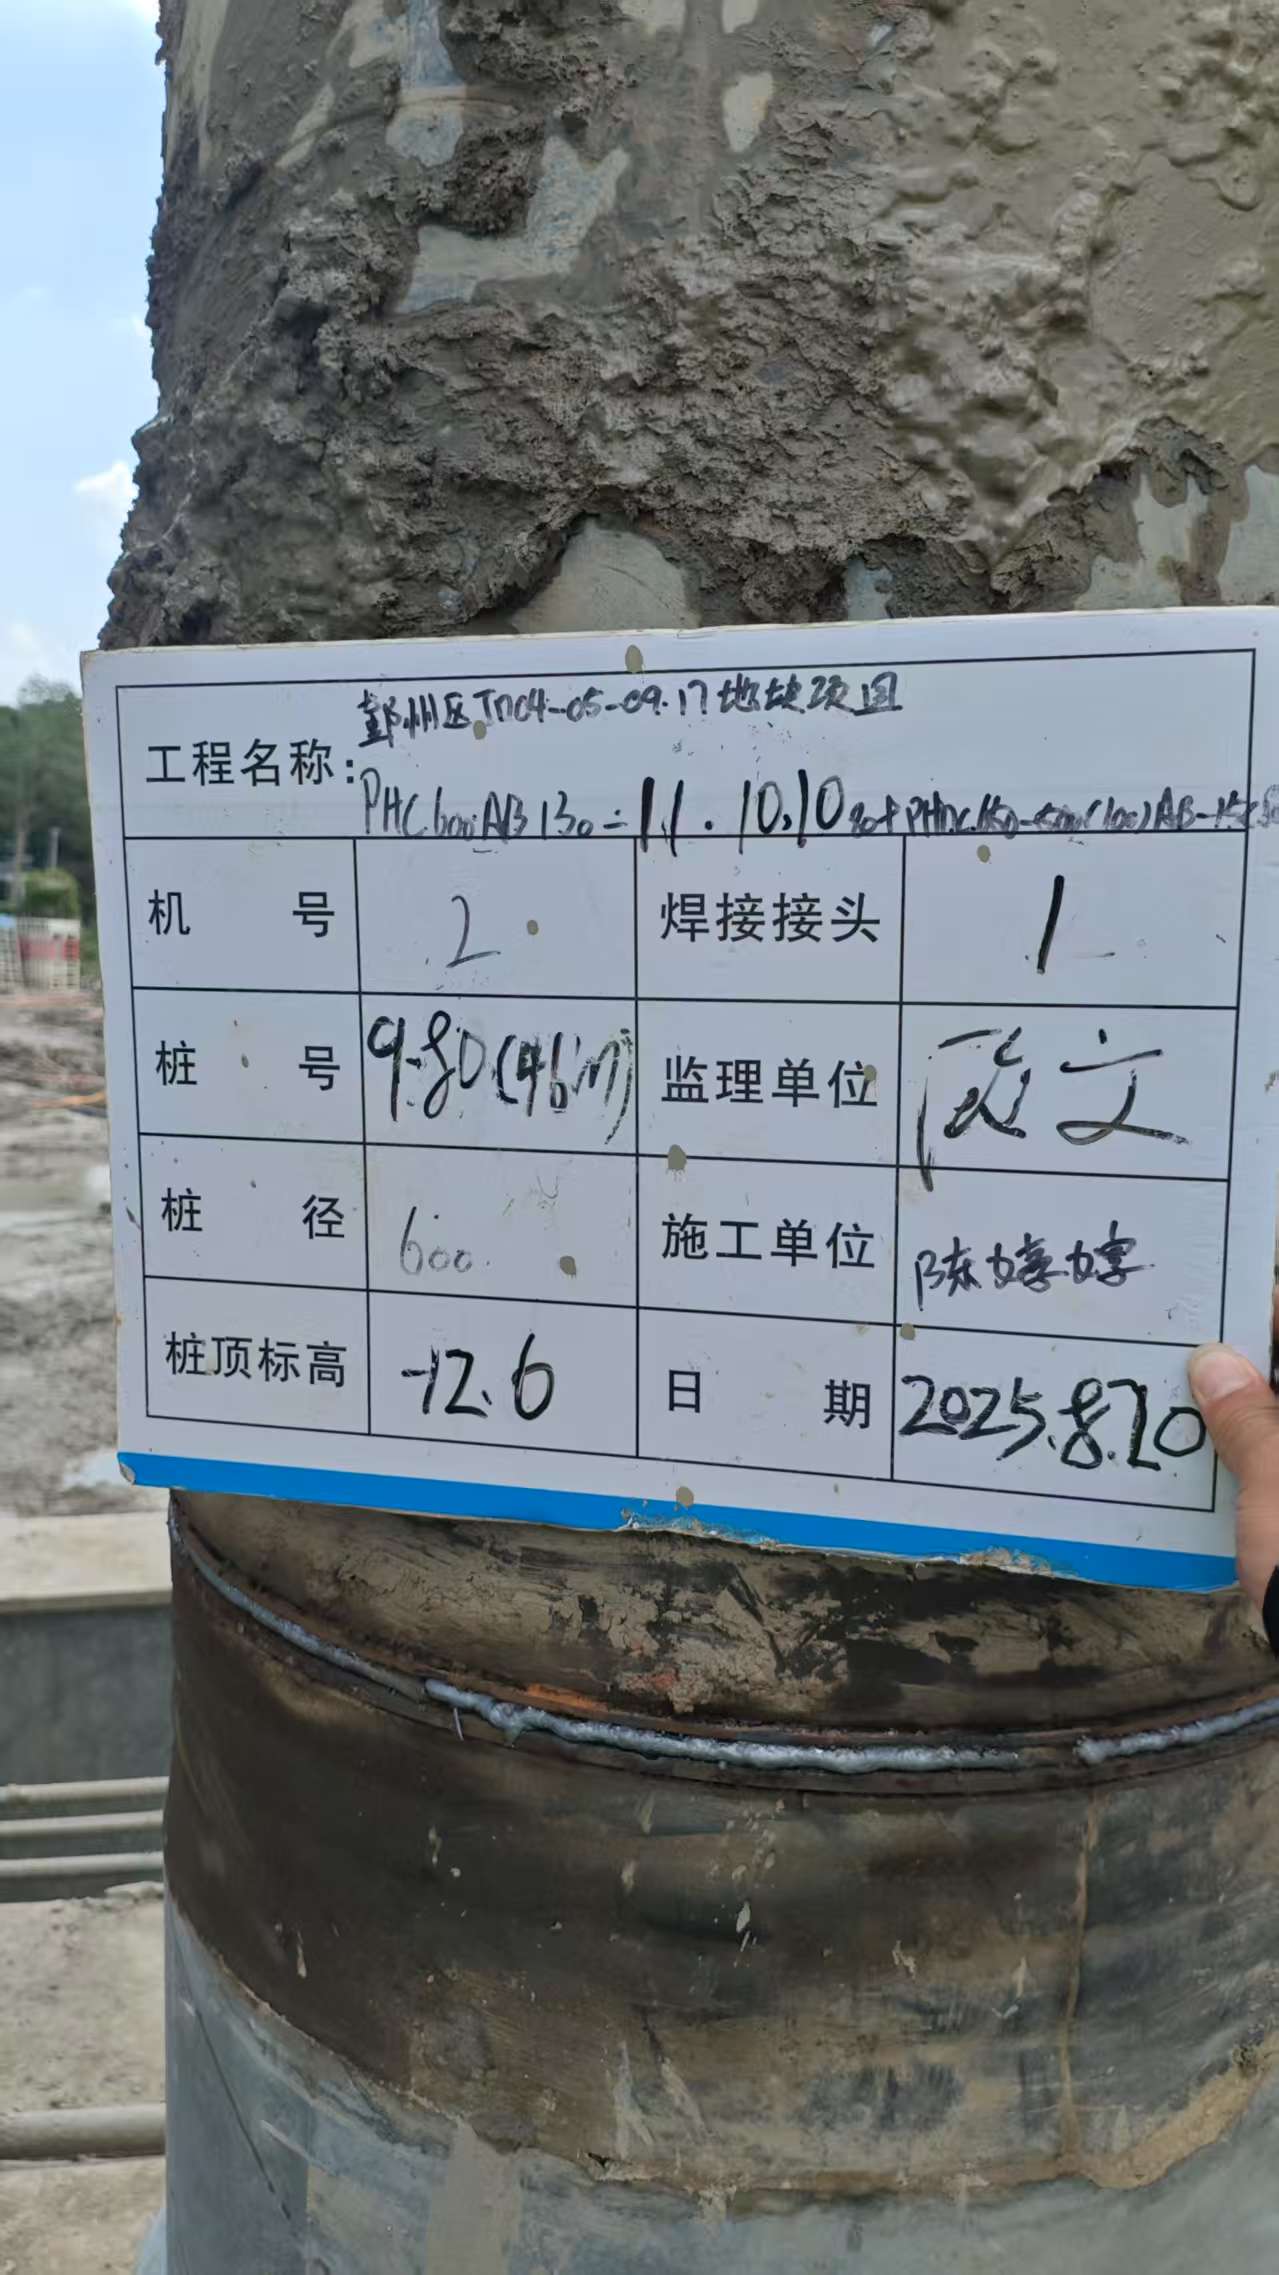 鄞州区JD04-05-09.17地块项目
工程名称：
PHC600AB130-11.10.10
机号 2 焊接接头 1
桩号 9-80(46m) 监理单位
桩径 600 施工单位 陈婷婷
桩顶标高 -12.6 日期 2025.8.20